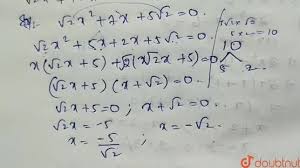 √2x² + 7x + 5√2 = 0.
√2x² + 5x + 2x + 5√2 = 0.
x(√2x + 5) + √2(x√2x + 5) = 0
(√2x + 5) (x + √2) = 0.
√2x + 5 = 0 ; x + √2 = 0.
√2x = -5 ; x = -√2.
x = -5/√2
5 × 2 = 10
10
5 2
doubtnut